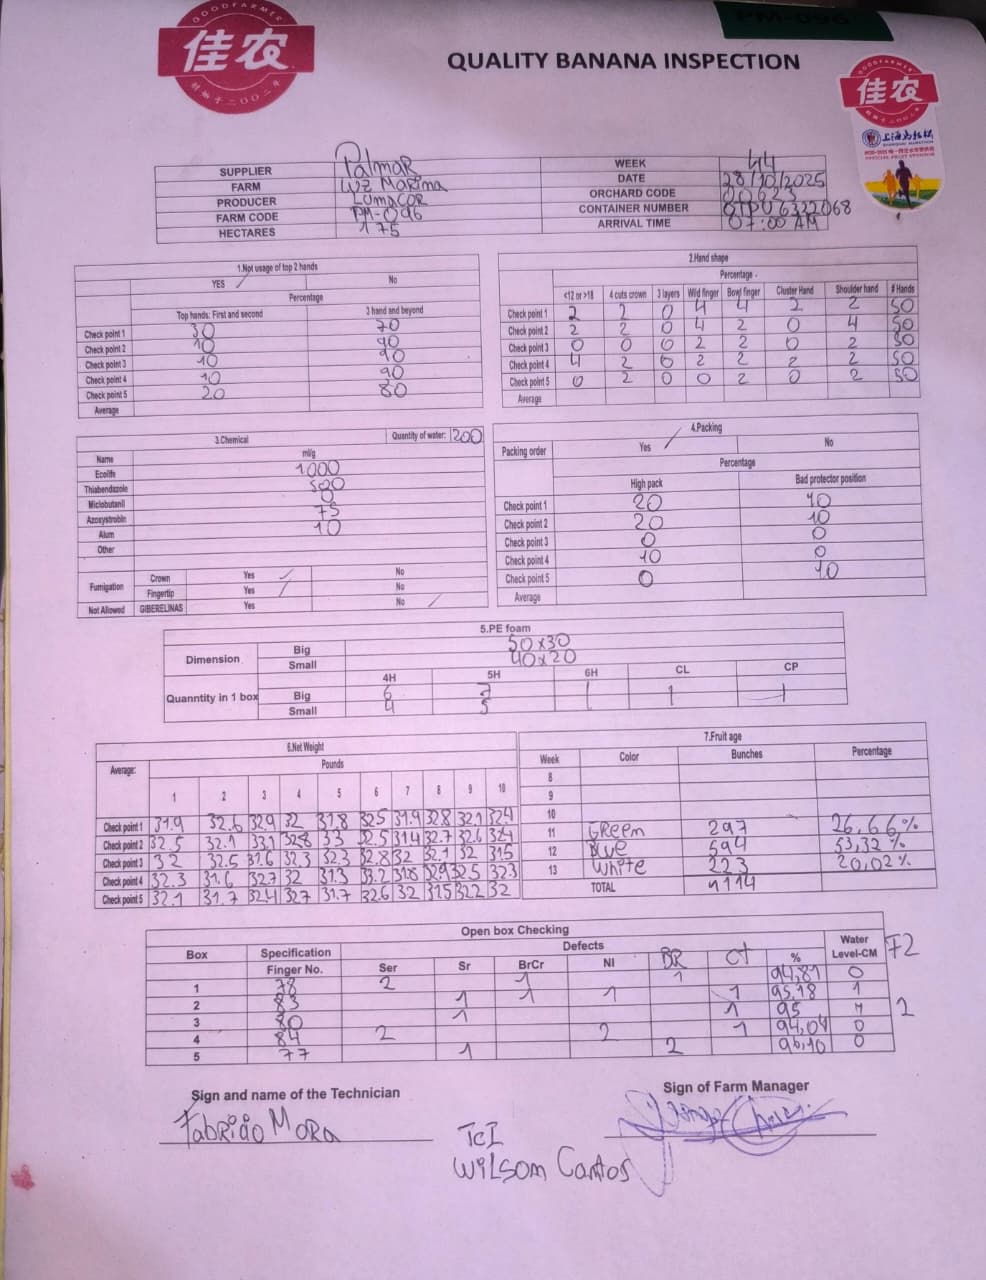 GOODFARMER
佳农
始创于二〇〇二年
PM-096
QUALITY BANANA INSPECTION
GOODFARMER
佳农
SHANGHAI MARATHON
OFFICIAL FRUIT SPONSOR
SUPPLIER Palmar WEEK 44
FARM Luz Marina DATE 28/10/2025
PRODUCER Lumacor ORCHARD CODE 20623
FARM CODE PM-096 CONTAINER NUMBER OTPU 6322068
HECTARES 175 ARRIVAL TIME 07:00 AM
1.Not usage of top 2 hands
YES / No
Percentage
Top hands: First and second 3 hand and beyond
Check point 1 30 70
Check point 2 10 90
Check point 3 10 90
Check point 4 10 90
Check point 5 20 80
Average
2.Hand shape
Percentage -
<12 or >18 4 cuts crown 3 layers Wild finger Bowl finger Cluster Hand Shoulder hand # Hands
Check point 1 2 2 0 4 4 2 2 50
Check point 2 2 2 0 4 2 0 4 50
Check point 3 0 0 0 2 2 0 2 50
Check point 4 4 2 0 2 2 2 2 50
Check point 5 0 2 0 0 2 0 2 50
Average
3.Chemical Quantity of water: 200
Name ml/g
Ecolife 1.000
Thiabendazole 500
Miclobutanil 0
Azosystrobin 75
Alum 10
Other
Fumigation Crown Yes / No
Fingertip Yes / No
Not Allowed GIBERELINAS Yes No /
4.Packing
Packing order Yes / No
Percentage
High pack Bad protector position
Check point 1 20 10
Check point 2 20 10
Check point 3 0 0
Check point 4 10 0
Check point 5 0 10
Average
5.PE foam
Dimension Big 50x30
Small 40x20
4H 5H 6H CL CP
Quanntity in 1 box Big 6 7
Small 4 5
6.Net Weight
Average: Pounds
1 2 3 4 5 6 7 8 9 10
Check point 1 31.9 32.6 32.9 32 31.8 32.5 31.9 32.8 32.1 32.4
Check point 2 32.5 32.1 33.1 32.8 33 32.5 31.4 32.7 32.6 32.4
Check point 3 32 32.5 31.6 32.3 32.3 32.8 32 32.1 32 31.5
Check point 4 32.3 31.6 32.7 32 31.3 33.2 31.8 32.9 32.5 32.3
Check point 5 32.1 31.7 32.4 32.7 31.7 32.6 32 31.5 32.2 32
7.Fruit age
Week Color Bunches Percentage
8
9
10
11 Green 297 26,66%
12 Blue 594 53,32%
13 White 223 20,02%
TOTAL 1114
Open box Checking
Box Specification Defects Water
Finger No. Ser Sr BrCr NI BR CT % Level-CM F2
1 78 2 1 1 94,87 0
2 83 1 1 1 1 95,18 1
3 80 1 1 95 1 2
4 84 2 2 1 94,04 0
5 77 1 2 96,10 0
Sign and name of the Technician Sign of Farm Manager
Fabricio Mora
TCI
Wilsom Cantos